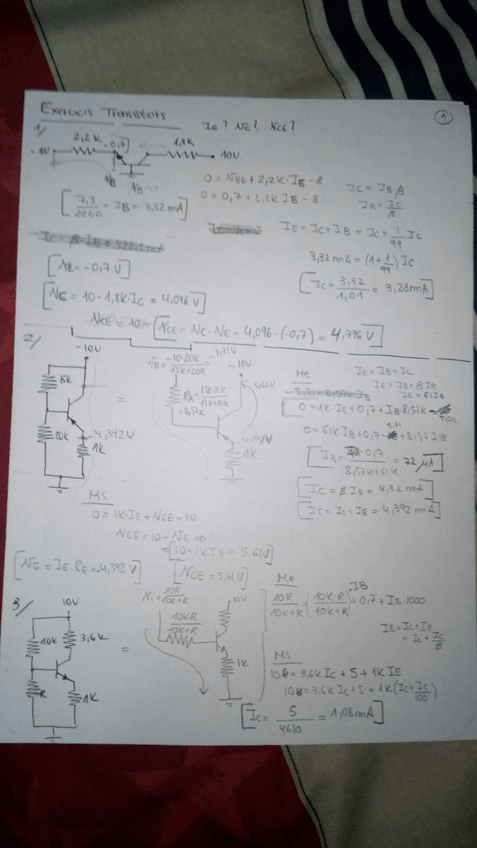 Exercicis Transistors
1
IE? VE? VCE?
1/
2,2K
-0,7
1,8K
-8V
10V
VB
0 = VBE + 2,2K·IE - 8
0 = 0,7 + 2,2K·IE - 8
IC = IB·β
IB = IC/β
[7,3/2200 = IE = 3,32 mA]
IE = IC + IB = IC + 1/99 IC
3,32 mA = (1 + 1/99) IC
[VE = -0,7 V]
[IC = 3,32/1,01 = 3,28 mA]
[VC = 10 - 1,8K·IC = 4,096 V]
[VCE = VC - VE = 4,096 - (-0,7) = 4,796 V]
2/
-10V
15K
20K
-4,392 V
1K
=
-10·20K/15K+20K = -5,71V
-10V
5,61V
1K
Me
IE = IB + IC
0 = 1K IE + 0,7 + IB·8,57K - 5,71
0 = 61K IB + 0,7 - 5,71 + 8,57K IB
= 72 µA]
[IC = β IB = 4,32 mA]
[IE = IC + IB = 4,392 mA]
Ms
0 = 1K·IE + VCE - 10
VCE = 10 - VE =>
= [10 - 1K IE = 5,61V]
[VE = IE·RE = -4,392 V]
[VCE = 5,61V]
3/
10V
10K
3,6K
R
1K
=
10R/10K+R
10K·R/10K+R
10V
1K
Me
10R/10K+R = (10K·R/10K+R)·IB + 0,7 + IE·1000
IE = IC + IB
= IC + IC/β
Ms
10 = 3,6K IC + 5 + 1K IE
10 = 3,6K IC + 5 + 1K (IC + IC/100)
[IC = 5/4610 = 1,08 mA]